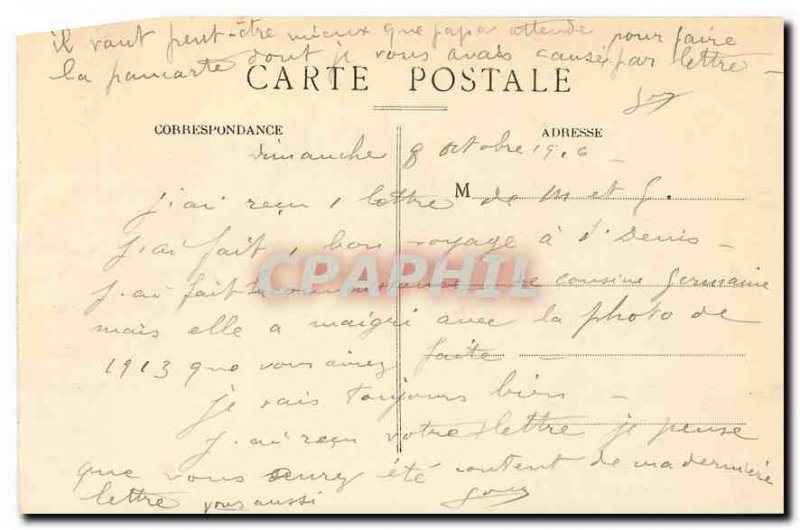 il vaut peut-être mieux que papa attende pour faire
la pancarte dont je vous avais causé par lettre —
CARTE POSTALE
CORRESPONDANCE
ADRESSE
Dimanche 8 octobre 1916
M
j'ai reçu 1 lettre de M et G.
j'ai fait 1 bon voyage à St Denis —
j'ai fait connaissance de cousine Germaine
mais elle a maigri avec la photo de
1913 que vous aviez faite —
je vais toujours bien —
j'ai reçu votre lettre je pense
que vous aurez été content de ma dernière
lettre vous aussi
CPAPHIL